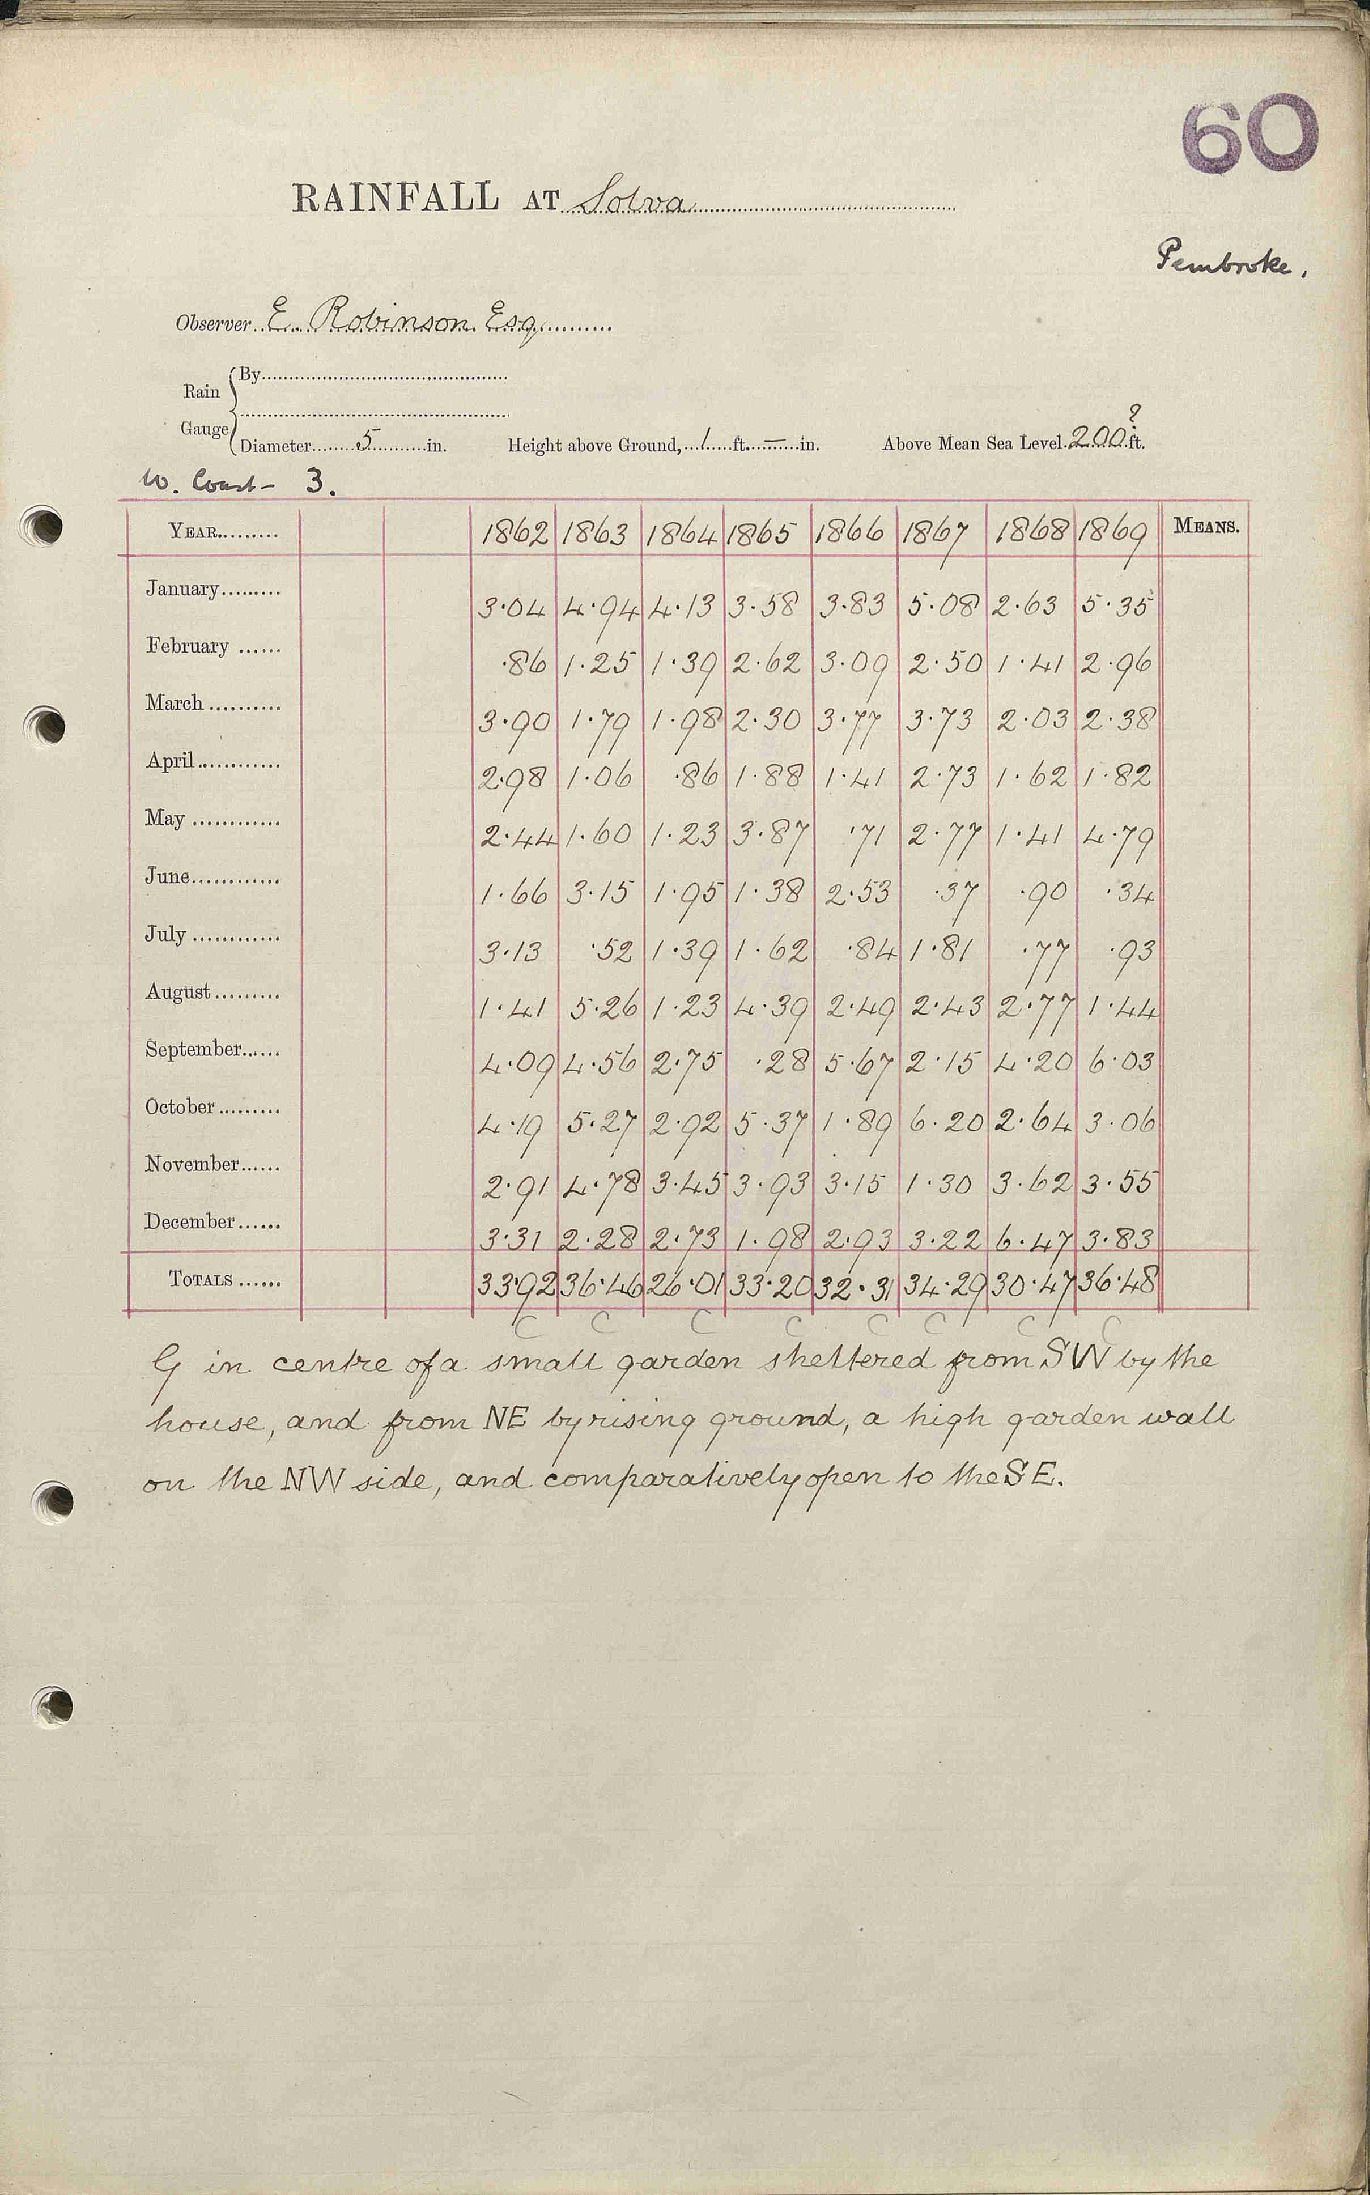 60
RAINFALL AT Solva
Pembroke.
Observer E. Robinson Esq
Rain Gauge { By
Diameter 5 in. Height above Ground, 1 ft. — in. Above Mean Sea Level 200 ? ft.
W. Coast - 3.
YEAR 1862 1863 1864 1865 1866 1867 1868 1869 MEANS.
January 3.04 4.94 4.13 3.58 3.83 5.08 2.63 5.35
February .86 1.25 1.39 2.62 3.09 2.50 1.41 2.96
March 3.90 1.79 1.98 2.30 3.77 3.73 2.03 2.38
April 2.98 1.06 .86 1.88 1.41 2.73 1.62 1.82
May 2.44 1.60 1.23 3.87 .71 2.77 1.41 4.79
June 1.66 3.15 1.95 1.38 2.53 .37 .90 .34
July 3.13 .52 1.39 1.62 .84 1.81 .77 .93
August 1.41 5.26 1.23 4.39 2.49 2.43 2.77 1.44
September 4.09 4.56 2.75 .28 5.67 2.15 4.20 6.03
October 4.19 5.27 2.92 5.37 1.89 6.20 2.64 3.06
November 2.91 4.78 3.45 3.93 3.15 1.30 3.62 3.55
December 3.31 2.28 2.73 1.98 2.93 3.22 6.47 3.83
TOTALS 33.92 36.46 26.01 33.20 32.31 34.29 30.47 36.48
C C C C C C C C
G in centre of a small garden sheltered from SW by the
house, and from NE by rising ground, a high garden wall
on the NW side, and comparatively open to the SE.